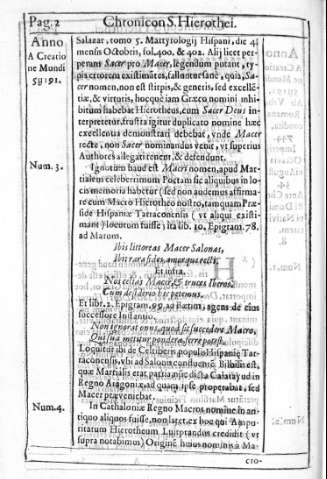 Pag. 2 Chronicon S. Hierothei.
Anno
A Creatio
ne Mundi
5y191.
Salazar, tomo 5. Martyrologij Hispani, die 4.
mensis Octobris, fol. 400. & 402. Alij licet per-
peram Sacer pro Macer, legendum putant, ty-
pis errorem existimãtes, fallunter sanè, quia, Sa-
cer nomen, non est stirpis, & generis, sed excellẽ-
tiæ, & virtutis, hocque iam Græco nomini inhi-
bitum habebat Hierotheus, cum Sacer Deus in-
terpretetur, frustra igitur duplicato nomine hæc
excellentia demonstrari debebat, vnde Macer
recte, non Sacer nominandus venit, vt superius
Authores allegati tenent, & defendunt.
Num. 3.
Ignotum haud est Macri nomen, apud Mar-
tialem celeberrimum Poetam sic aliquibus in lo-
cis memoria habetur (sed non audemus affirma-
re cum Macro Hierotheo nostro, tamquam Præ-
side Hispaniæ Tarraconensis (vt aliqui existi-
mant) locutum fuisse) ita lib. 10. Epigram. 78.
ad Marum.
Ibis littoreas Macer Salonas,
Ibit rara fides, amorque recti,
Et infra.
Nos celtas Macer, & truces Iberos,
Cum desiderio tui petimus.
Et libr. 1. Epigram. 99. ad Pætum, agens de eius
successore Instantio.
Non ignorat onus, quod sic succedere Macro,
Qui sua metitur pondera, ferre potest.
Loquitur ibi de Celtiberis populo Hispaniæ Tar-
raconensis, vbi ad Salonæ conduensis Bilbilis est,
quæ Martialis erat patria nũc dicta Calatayud in
Regno Aragoniæ, ad quam ipse properabat, sed
Macer prævenicbat.
Num. 4.
In Cathaloniæ Regno Macros nomine in an-
tiquo aliquos fuisse, non latet, ex hoc qui Ampu-
ritarum Hierotheum Luitprandus credidit (vt
supra notabimus) Origine huius nominis à Ma-
cro-